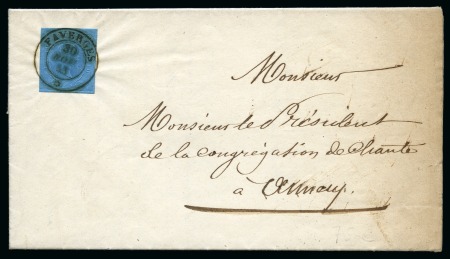 FAVERGES
30
NOV
53
Monsieur
Monsieur le Président
de la congrégation de charité
à Annecy.